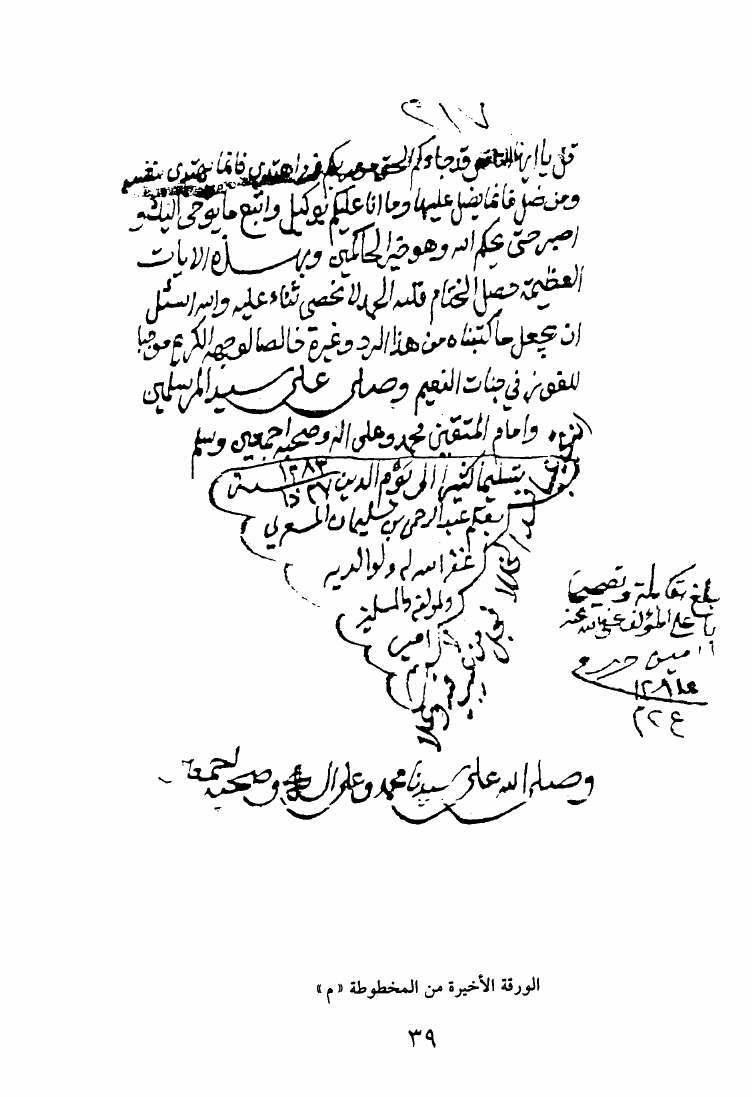 ٢١٧
قل يا ايها الناس قد جاءكم الحق من ربكم فمن اهتدى فانما يهتدى لنفسه
ومن ضل فانما يضل عليها وما انا عليكم بوكيل واتبع ما يوحى اليك و
اصبر حتى يحكم الله وهو خير الحاكمين وبهذه الايات
العظيمة حصل الختام فلله الحمد لا نحصى ثناء عليه والله اسئل
ان يجعل ما كتبناه من هذا الرد وغيره خالصا لوجهه الكريم موجبا
للفوز في جنات النعيم وصلى على سيد المرسلين
وامام المتقين محمد وعلى اله وصحبه اجمعين وسلم
تسليما كثيرا الى يوم الدين سنة ١٢٨٣
٢٧
بقلم عبد الرحمن بن سليمان
غفر الله له ولوالديه
ولمؤلفه والمسلمين
امين
بلغ مقابلة وتصحيحا
على المؤلف عفى الله عنه
امين
وصلى الله على سيدنا محمد وعلى ال وصحبه
الورقة الأخيرة من المخطوطة « م »
٣٩